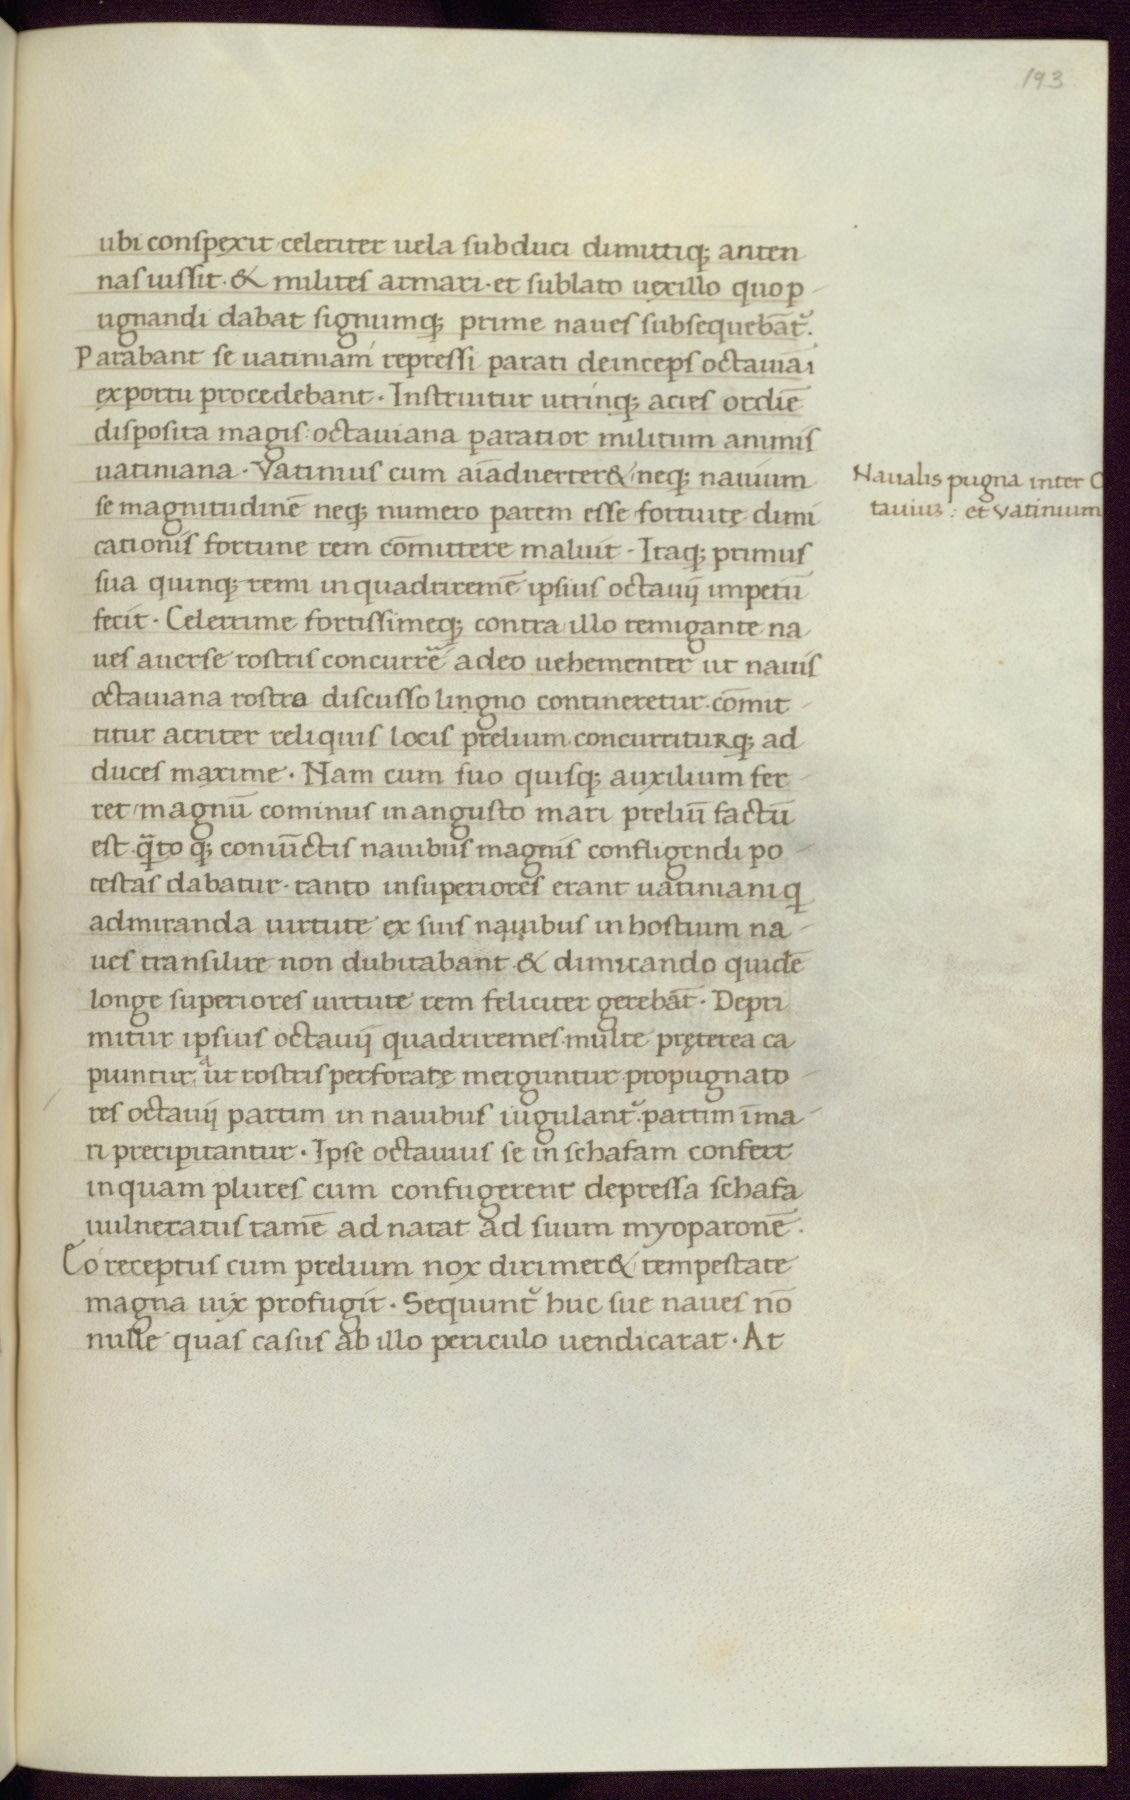 193
ubi conspexit celeriter uela subduci dimittiq; anten
nas iussit · & milites armari · et sublato uexillo quo p
ugnandi dabat signumq; prime naues subsequebāt᷑.
Parabant se uatiniani repressi parati deinceps octauiāi
ex portu procedebant · Instruitur utrinq; acies ordiē
disposita magis: octauiana paratior militum animis
uatiniana · Vatinius cum aīaduerter& neq; nauium
se magnitudinē neq; numero parem esse fortuitę dimi
cationis fortune rem cōmittere maluit · Itaq; primus
sua quinq; remi in quadriremē ipsius octauij impetū
fecit · Celerrime fortissimeq; contra illo remigante na
ues auerse rostris concurrē adeo uehementer ut nauis
octauiana rostro discusso lingno contineretur · cōmit
titur acriter reliquis locis prelium concurriturq; ad
duces maxime · Nam cum suo quisq; auxilium fer
ret magnū cominus in angusto mari preliū factū
est q̄to q; coniūctis nauibus magnis confligendi po
testas dabatur · tanto insuperiores erant uatiniani q
admiranda uirtute ex suis nauibus in hostium na
ues transilire non dubitabant & dimicando quidē
longe superiores uirtute rem feliciter gerebāt · Depri
mitur ipsius octauij quadriremes · multe pręterea ca
piuntur aut rostris perforatę merguntur · propugnato
res octauij partim in nauibus iugulant᷑ · partim ī ma
ri precipitantur · Ipse octauius se in schafam confert
in quam plures cum confugerent depressa schafa
uulneratus tamē ad natat ad suum myoparonē ·
Eo receptus cum prelium nox dirimer& tempestate
magna uix profugit · Sequunt᷑ huc sue naues nō
nulle quas casus ab illo periculo uendicarat · At
Naualis pugna inter O
tauiuʒ : et vatinium